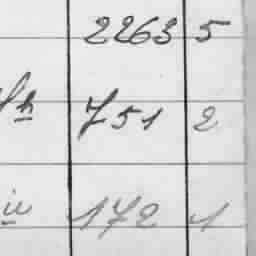 2263 5
h 751 2
ie 172 1